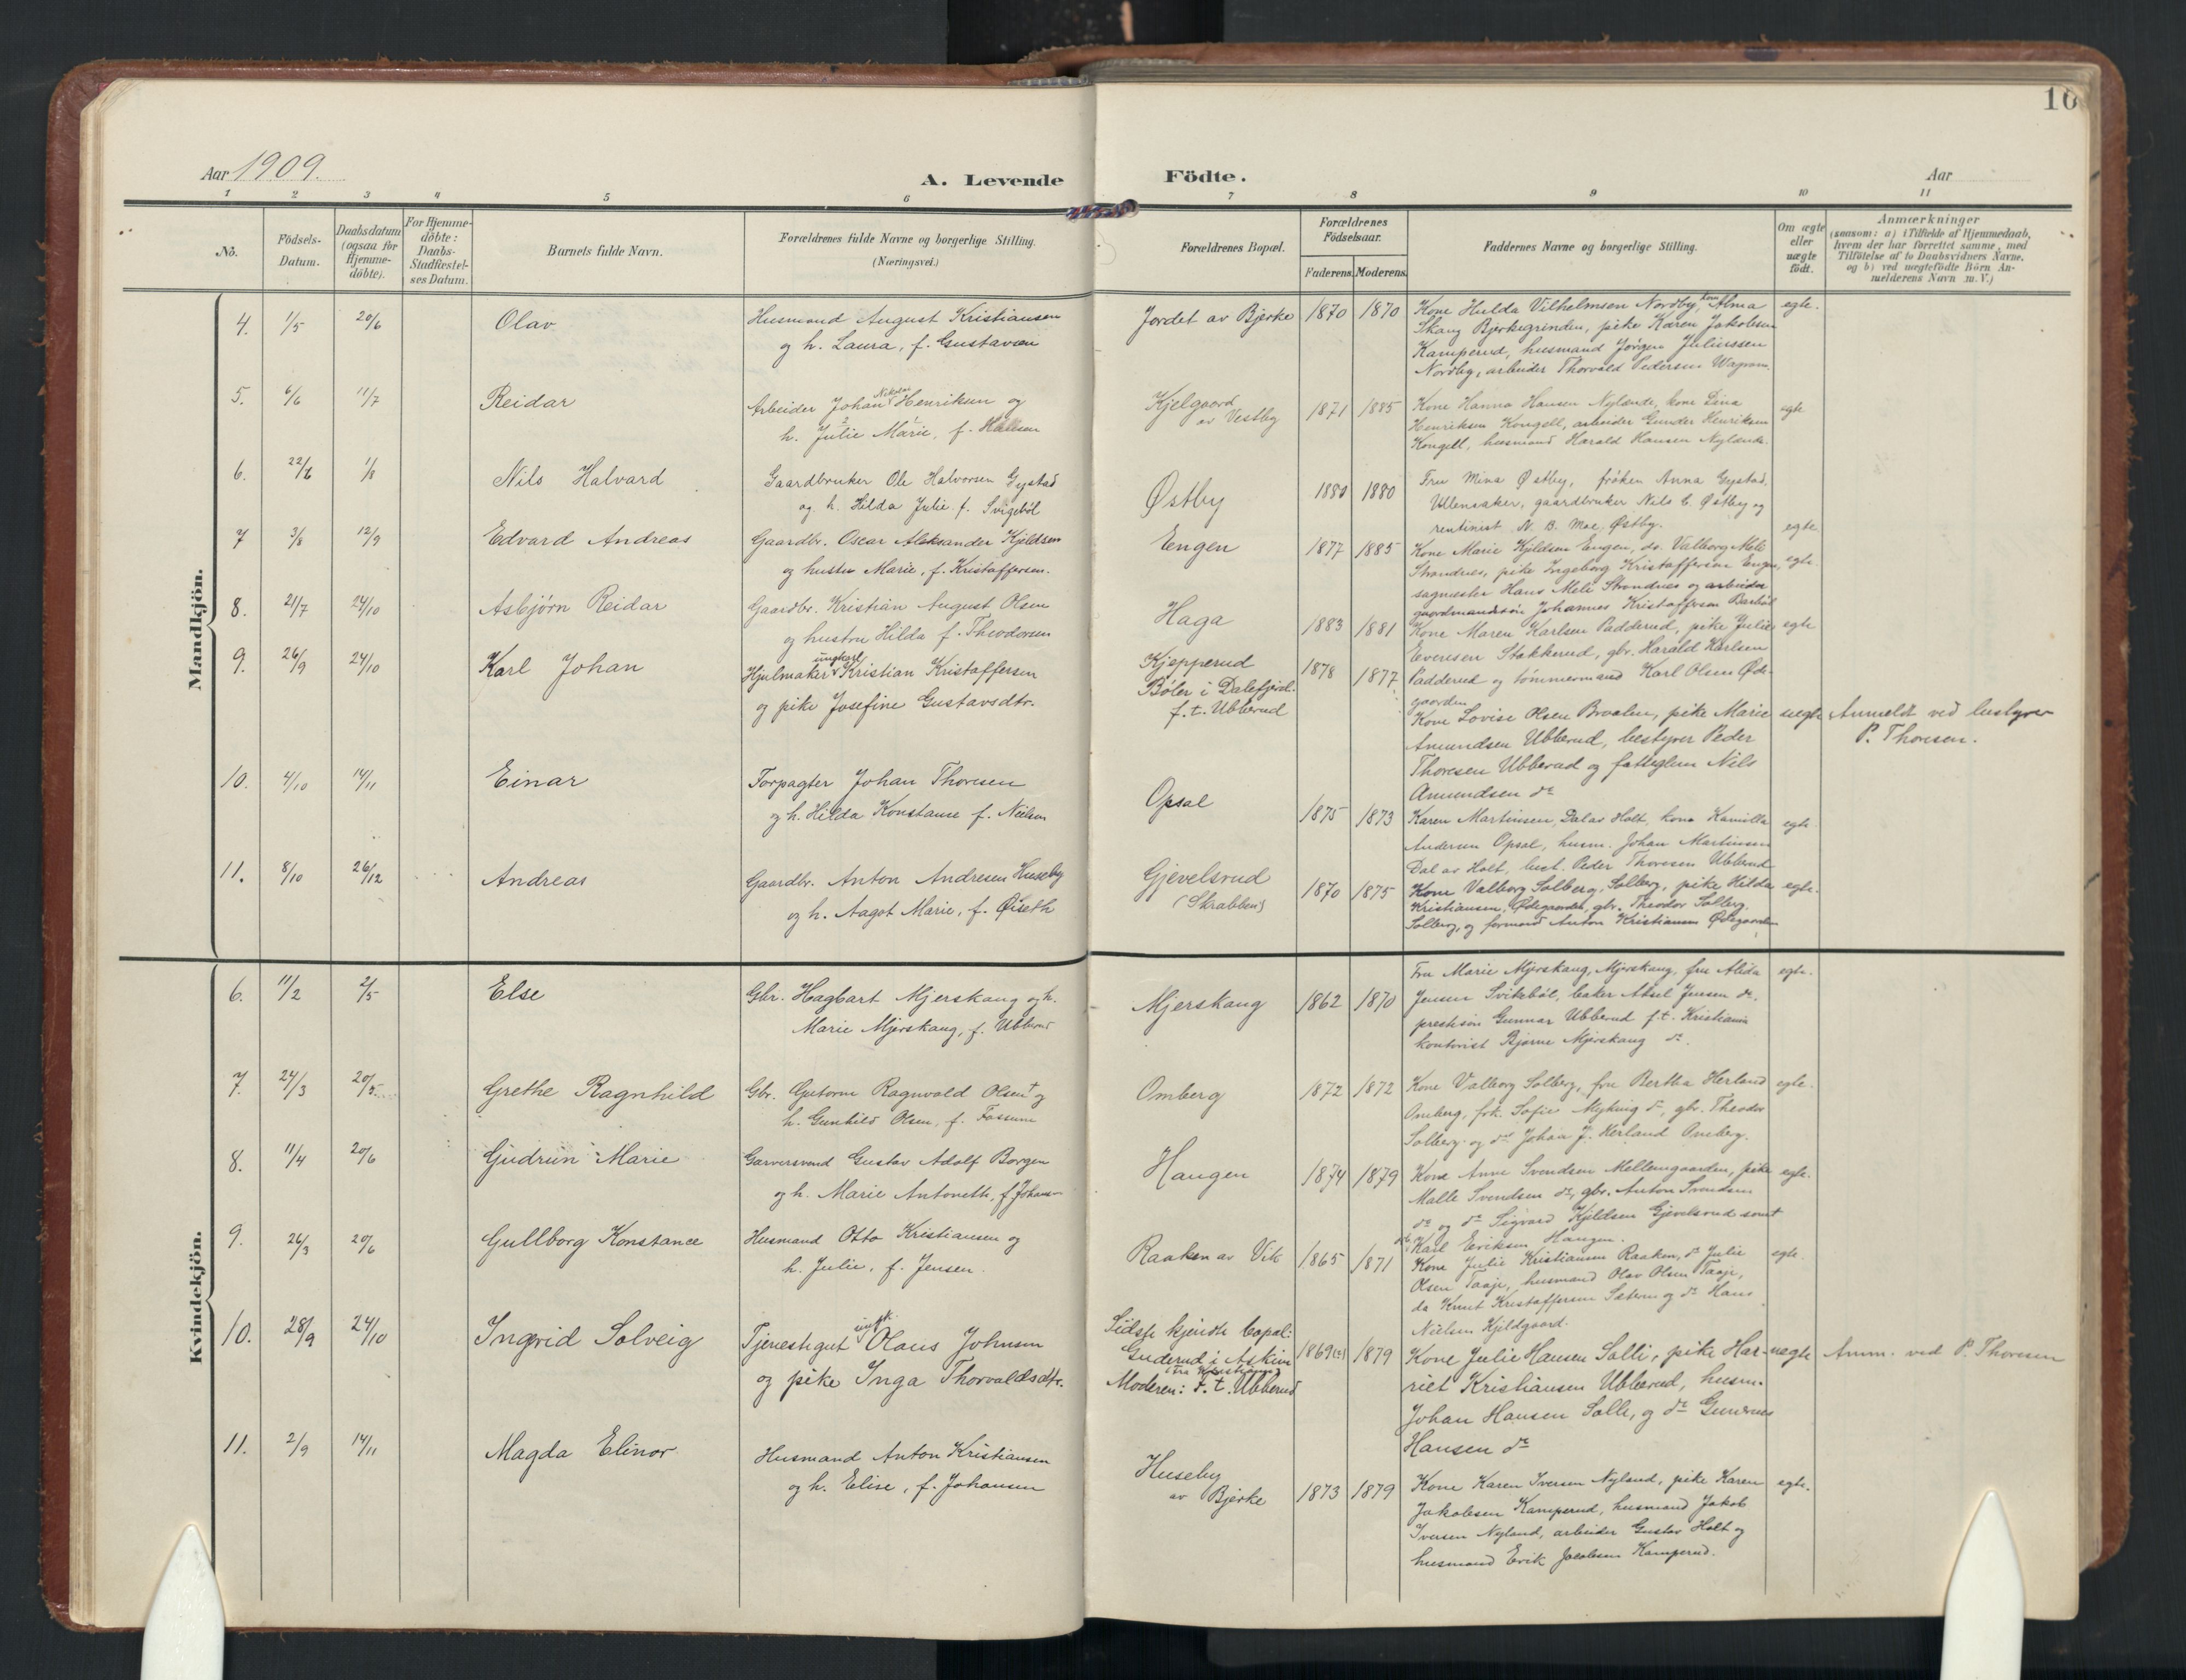 10
Aar 1909.
A. Levende Födte.
Aar
1 2 3 4 5 6 7 8 9 10 11
No.
Födsels-Datum.
Daabsdatum (ogsaa for Hjemme-döbte).
For Hjemme-döbte: Daabs-Stadfæstel-ses Datum.
Barnets fulde Navn.
Forældrenes fulde Navne og borgerlige Stilling.
(Næringsvei.)
Forældrenes Bopæl.
Forældrenes Födselsaar.
Faderens. Moderens.
Faddernes Navne og borgerlige Stilling.
Om ægte eller uægte födt.
Anmærkninger
(saasom: a) i Tilfælde af Hjemmedaab,
hvem der har forrettet samme, med
Tilföielse af to Daabsvidners Navne.
og b) ved uægtefödte Börn An-
melderens Navn m. V.)
Mandkjön.
4. 1/5 20/6 Olav
Husmand August Kristiansen
og h. Laura, f. Gustavsen
Jordet av Bjerke 1870 1870
Kone Hulda Vilhelmsen Nordby, kone Alma
Skaug Bjerkegrinden, pike Karen Jakobsen
Kamperud, husmand Jørgen Juliussen
Nordby, arbeider Thorvald Pedersen Wagram.
egte.
5. 6/6 11/7 Reidar
Arbeider Johan Nikolai Henriksen og
h. Julie Marie, f. Hansen
Kjelgaard
av Vestby 1871 1885
Kone Hanna Hansen Nylænde, kone Lina
Henriksen Kongell, arbeider Gunder Henriksen
Kongell, husmand Harald Hansen Nylænde.
egte
6. 22/6 1/8 Nils Halvard
Gaardbruker Ole Halvorsen Gystad
og h. Hilda Julie f. Svigebøl
Østby 1880 1880
Fru Mina Østby, frøken Anna Gystad,
Ullensaker, gaardbruker Nils C. Østby og
rentinist N. B. Moe, Østby.
egte
7 3/8 12/9 Edvard Andreas
Gaardbr. Oscar Aleksander Kjeldsen
og hustru Marie, f. Kristoffersen.
Engen 1877 1885
Kone Marie Kjeldsen Engen, do. Valborg Mele
Strandnes, pike Ingeborg Kristoffersen Engen,
sagmester Hans Mele Strandnes og arbeider
gaardmandssøn Johannes Kristoffersen Barbøl
egte.
8. 21/7 24/10 Asbjørn Reidar
Gaardbr. Kristian August Olsen
og hustru Hilda f. Theodorsen
Haga 1883 1881
Kone Maren Karlsen Padderud, pike Julie
Evensen Stokkerud, gbr. Harald Karlsen
Padderud og tømmermand Karl Olsen Øde-
gaarden
egte
9. 26/9 24/10 Karl Johan
Hjulmaker ungkarl Kristian Kristoffersen
og pike Josefine Gustavsdtr.
Kjepperud
Bøler i Dalefjerd.
f.t. Ubberud 1878 1877
Kone Lovise Olsen Braaten, pike Marie
Amundsen Ubberud, bestyrer Peder
Thoresen Ubberud og fattiglem Nils
Amundsen do
uegte
Anmeldt ved bestyrer
P. Thoresen.
10. 4/10 14/11 Einar
Forpagter Johan Thoresen
og h. Hilda Konstanse f. Nielsen
Opsal 1875 1873
Karen Martinsen, Dal av Holt, kona Kamilla
Andersen Opsal, husm. Johan Martinsen
Dal av Holt, best. Peder Thoresen Ubberud
egte.
11. 8/10 26/12 Andreas
Gaardbr. Anton Andresen Huseby
og h. Aagot Marie, f. Øiseth
Gjevelsrud
(Skrabben) 1870 1875
Kone Valborg Solberg, Solberg, pike Hilda
Kristiansen, Ødegaarden, gbr. Theodor Solberg,
Solberg, og formand Anton Kristiansen Ødegaarden
egte.
Kvindekjön.
6. 11/2 2/5 Else
Gbr. Hagbart Mjerskaug og h.
Marie Mjerskaug, f. Ubberud
Mjerskaug 1862 1870
Fru Marie Mjerskaug, Mjerskaug, fru Alida
Jensen Svikebøl, baker Aksel Jensen do,
prestesøn Gunnar Ubberud f.t. Kristiania
kontorist Bjarne Mjerskaug do.
egte.
7. 24/3 20/5 Grethe Ragnhild
Gbr. Gutorm Ragnvald Olsen + og
h. Gunhild Olsen, f. Fossum
Omberg 1872 1872
Kone Valborg Solberg, fru Bertha Herland
Omberg, frk. Sofie Myking do, gbr. Theodor
Solberg og do Johan J. Herland Omberg.
egte.
8. 11/4 20/6 Gudrun Marie
Garversvend Gustav Adolf Borgen
og h. Marie Antonette, f. Johansen
Haugen 1874 1879
Kone Anne Svendsen Mellemgaarden, pike
Malle Svendsen do, gbr. Anton Svendsen
do og do Sigvard Kjeldsen Gjevelsrud samt
Karl Eriksen Haugen.
egte.
9. 26/3 20/6 Gullborg Konstance
Husmand Otto Kristiansen og
h. Julie, f. Jensen.
Raaken av Vik 1865 1871
Kone Julie Kristiansen Raaken, do Julie
Olsen Taaje, husmand Olav Olsen Taaje,
do Knut Kristoffersen Sæteren og do Hans
Nielsen Kjeldgaard.
egte.
10. 28/9 24/10 Ingrid Solveig
Tjenestegut ungk. Olaus Johnsen
og pike Inga Thorvaldsdtr.
Sidste kjendte bopæl:
Guderud i Askim
fra Kristiania
Moderen: f.t. Ubberud 1869(?) 1879
Kone Julie Hansen Solli, pike Har-
riet Kristiansen Ubberud, husm.
Johan Hansen Solli, og do Gunerius
Hansen do
uegte
Anm. ved P. Thoresen
11. 2/9 14/11 Magda Elinor
Husmand Anton Kristiansen
og h. Elise, f. Johansen
Huseby
av Bjerke 1873 1879
Kone Karen Iversen Nyland, pike Karen
Jakobsen Kamperud, husmand Jakob
Iversen Nyland, arbeider Gustav Holt og
husmand Erik Jacobsen Kamperud.
egte.